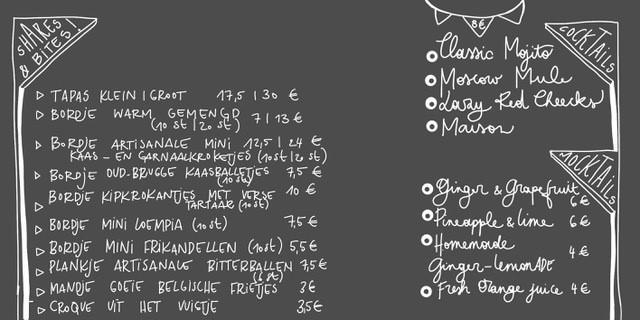 SHARES
& BITES!
▷ TAPAS KLEIN | GROOT 17,5 | 30 €
▷ BORDJE WARM GEMENGD 7 | 13 €
(10 st | 20 st)
▷ BORDJE ARTISANALE MINI 12,5 | 24 €
KAAS - EN GARNAALKROKETJES (10 st | 20 st)
▷ BORDJE OUD-BRUGGE KAASBALLETJES 7,5 €
(10 st)
BORDJE KIPKROKANTJES MET VERSE 10 €
▷ TARTAAR (10 st)
▷ BORDJE MINI LOEMPIA (10 st) 7,5 €
▷ BORDJE MINI FRIKANDELLEN (10 st) 5,5 €
▷ PLANKJE ARTISANALE BITTERBALLEN 7,5 €
(6 st)
▷ MANDJE GOEIE BELGISCHE FRIETJES 3 €
▷ CROQUE UIT HET VUISTJE 3,5 €
8 €
COCKTAILS
Classic Mojito
Moscow Mule
Lazy Red Cheecks
Maison
MOCKTAILS
Ginger & Grapefruit
6 €
Pineapple & lime 6 €
Homemade
4 €
Ginger-lemonADE
Fresh Orange juice 4 €